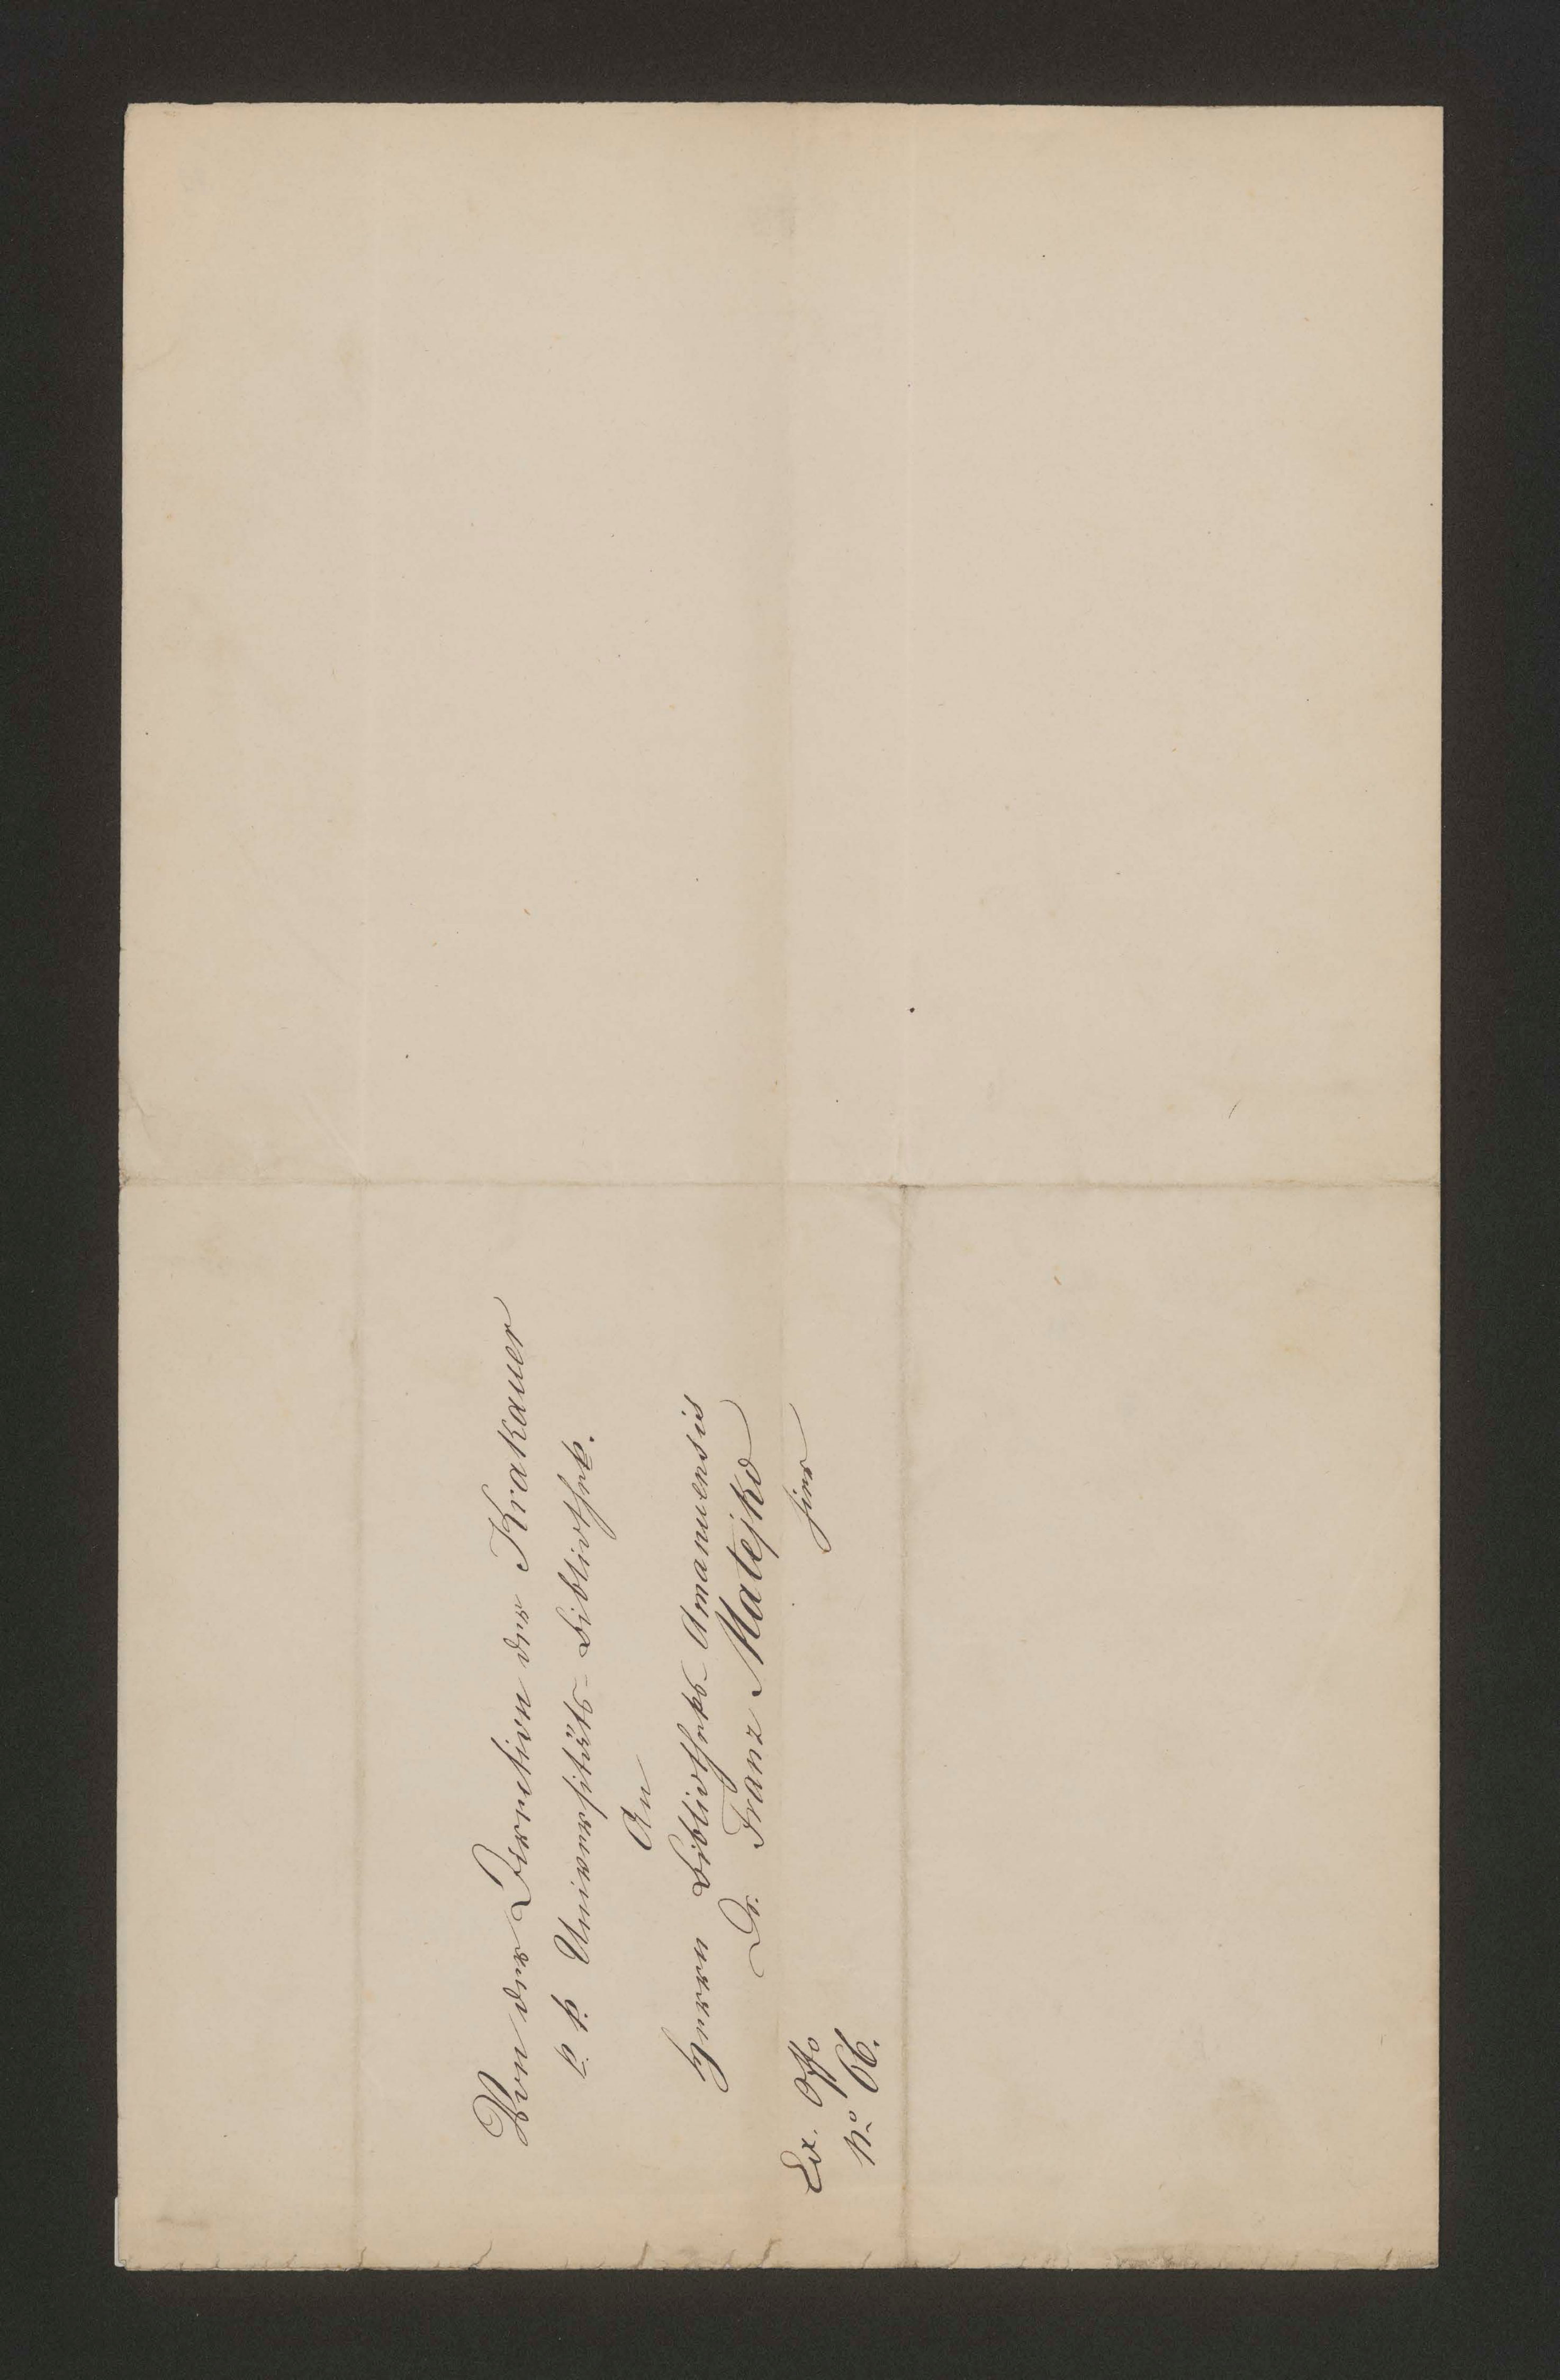 Von der Direction der Krakauer
k. k. Universitäts-Bibliothek.
An
Herrn Bibliotheks-Amanuensis
Dr. Franz Matejko
hier
Ex. Offo
No 66.